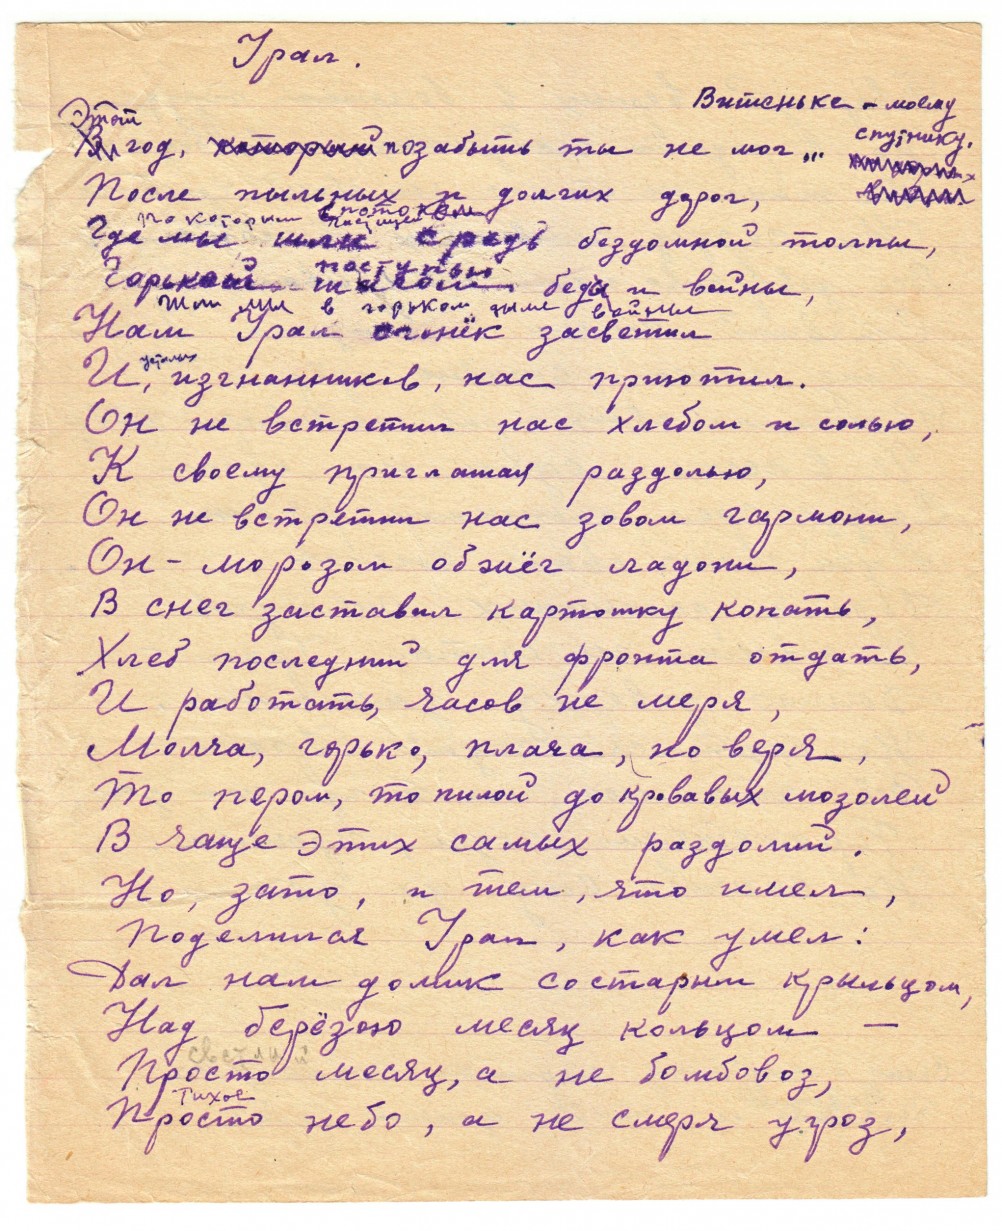 Урал.
Витеньке – моему
спутнику.
Этот
Я год, который позабыть ты не мог...
После пыльных и долгих дорог,
По которым с потоком
Где мы шли средь бездомной толпы,
поступью
Горькой беды и войны,
Шли мы в горьком дыме войны
Нам Урал огонёк засветил
усталых
И, изгнанников, нас приютил.
Он не встретил нас хлебом и солью,
К своему приглашая раздолью,
Он не встретил нас зовом гармони,
Он – морозом обжёг ладони,
В снег заставил картошку копать,
Хлеб последний для фронта отдать,
И работать, часов не меря,
Молча, горько, плача, но веря,
То пером, то пилой до кровавых мозолей
В чаще этих самых раздолий.
Но, зато, и тем, что имел,
Поделился Урал, как умел:
Дал нам домик со старым крыльцом,
Над берёзою месяц кольцом –
светлый
Просто месяц, а не бомбовоз,
Тихое
Просто небо, а не смерч угроз,